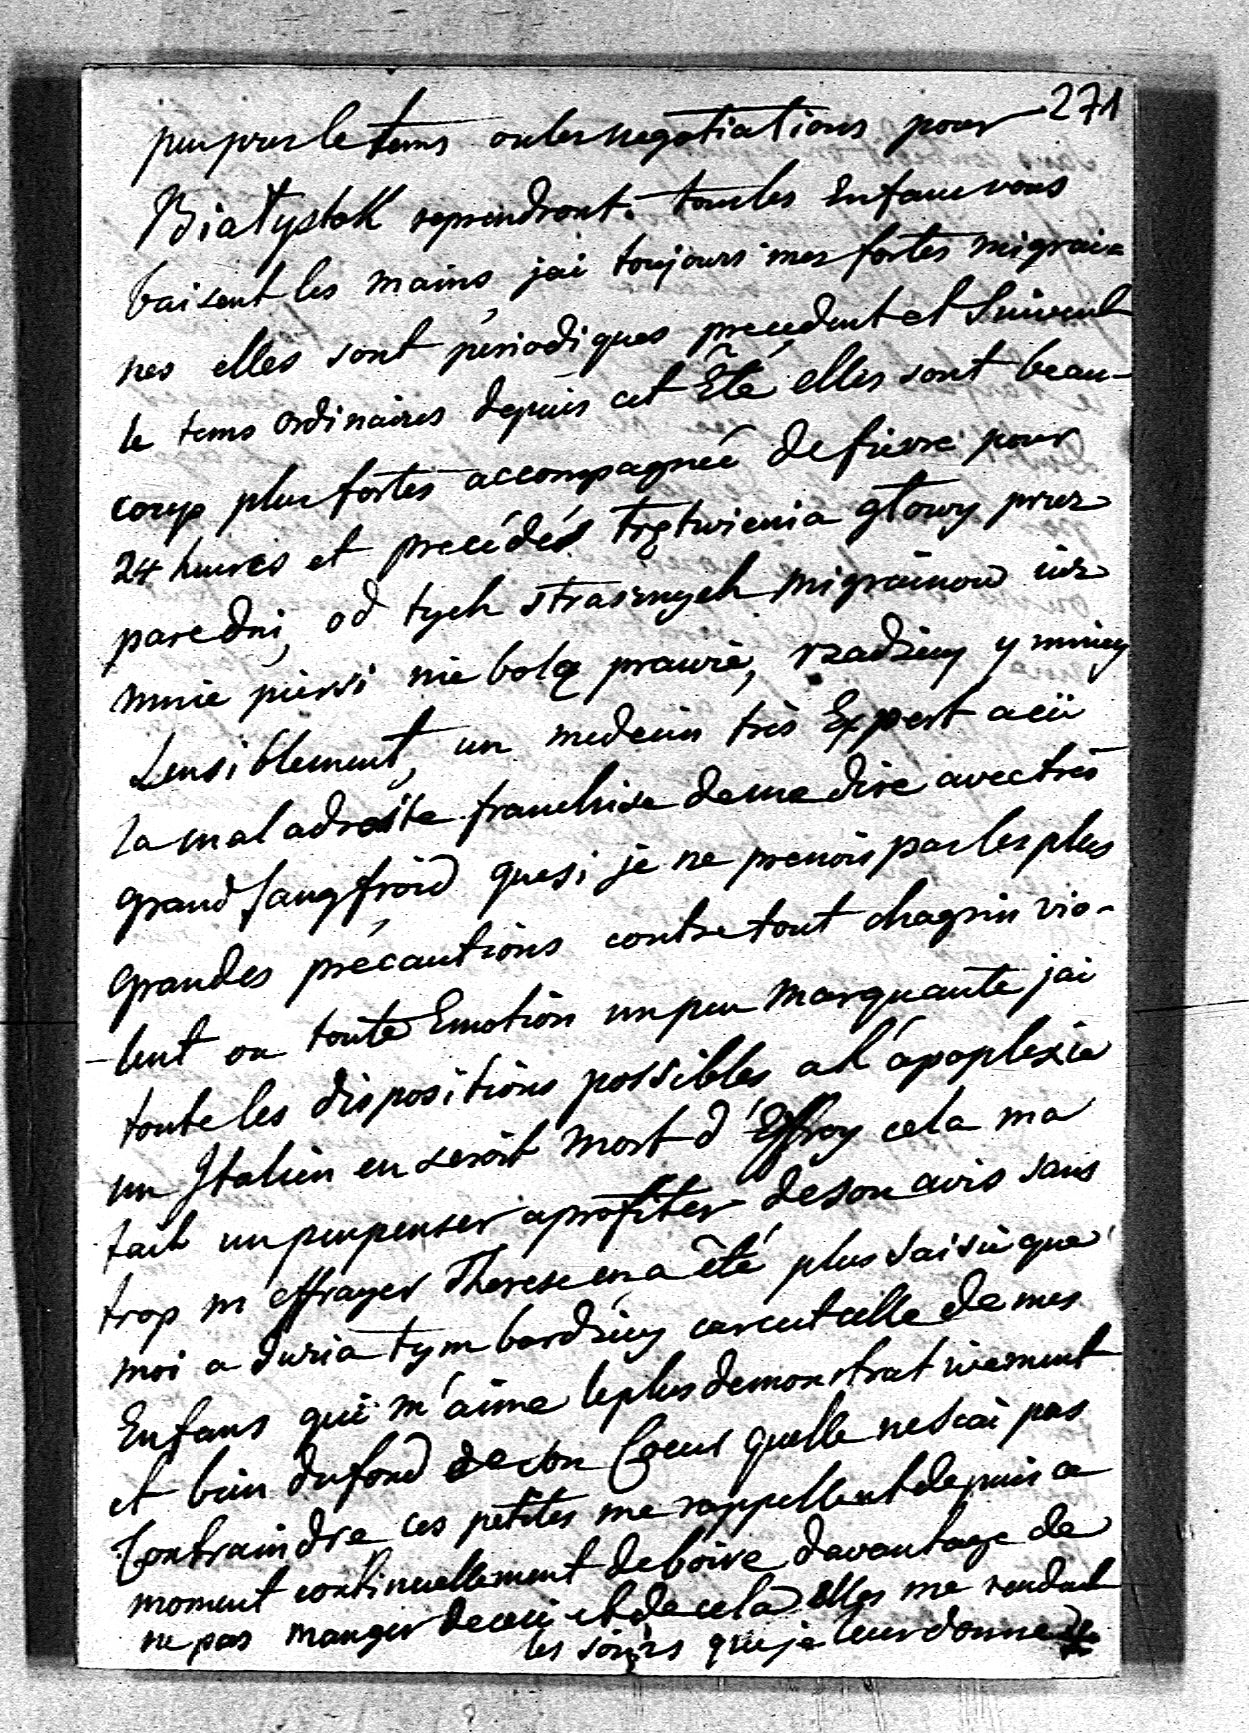 271
peu pres le tems ou les negotiations pour
Białystok reprendront. tous les Enfans vous
baisent les mains, jai toujours mes fortes migrai=
nes elles sont périodiques precedent et Suivent
le tems ordinaires depuis cet Êté elles sont beau-
coup plus fortes accompagnée de fievre pour
24 heures et precédés trętwienia głowy przez
pare dni, od tych strasznych migrainow iuz
mnie piersi nie bolą prawie, rzadziey y mniey
sensiblement, un medecin très Expert a eü
la mal adroite franchise de me dire avec très
grand sang froid que si je ne prenois pas les plus
grandes précautions contre tout chagrin vio-
-lent ou toute Emotion un peu marquante jai
toute les dispositions possibles a l'apoplexie
un Italien en seroit mort d'Effroy cela ma
fait un peu penser a profiter de son avis sans
trop m'effrayer Therese en a êté plus saisie que
moi a Duzia tym bardziey car cest celle de mes
Enfans qui m'aime le plus demonstrativement
et bien du fond de son Coeur quelle ne scai pas
Contraindre ces petites me rappellent depuis ce
moment continuellement de boire davantage de
ne pas manger de ceci et de cela elles me rendent
les soins que je leur donne